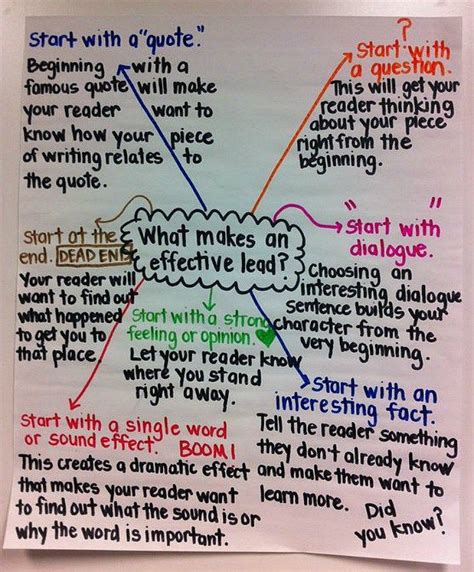 Start with a "quote."
Beginning with a
famous quote will make
your reader want to
know how your piece
of writing relates to
the quote.
?
Start with
a question.
This will get your
reader thinking
about your piece
right from the
beginning.
What makes an
effective lead?
Start at the
end. DEAD END
Your reader will
want to find out
what happened
to get you to
that place.
" "
Start with
dialogue.
Choosing an
interesting dialogue
sentence builds your
character from the
very beginning.
Start with a strong
feeling or opinion.
Let your reader know
where you stand
right away.
Start with a single word
or sound effect. BOOM!
This creates a dramatic effect
that makes your reader want
to find out what the sound is or
why the word is important.
Start with an
interesting fact.
Tell the reader something
they don't already know
and make them want to
learn more.
Did
you know?